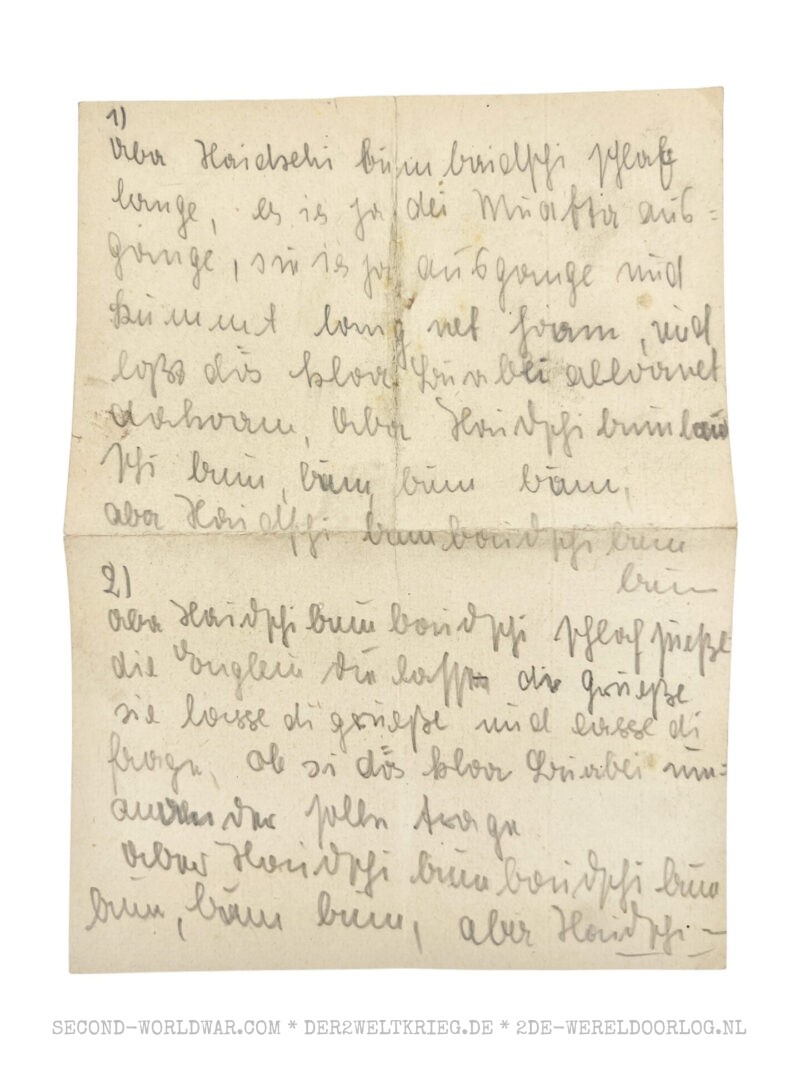 1)
Aba Haidschi bum baidschi schlaf
lange, es is ja dei Muatta aus=
gange, sie is ja ausgange und
kummt lang net hoam, und
loßt dös kloa Buabei alloanet
dahoam, aba Haidschi bum baid
schi bum, bum, bum bum,
aba Haidschi bumbaidschi bum
bum
2)
aba Haidschi bum baidschi schlaf süeße
die Englein die lassn di grueße
sie lasse di grueße und lasse di
frage, ob si dös kloa Buabei um=
anander solln trage
aber Haidschi bum baidschi bum
bum, bum bum, aber Haidschi –
SECOND-WORLDWAR.COM * DER2WELTKRIEG.DE * 2DE-WERELDOORLOG.NL